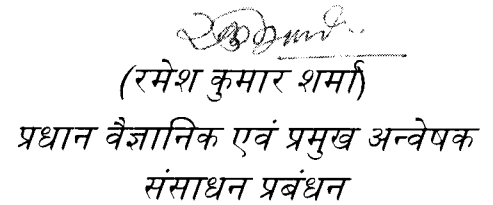 (रमेश कुमार शर्मा)
प्रधान वैज्ञानिक एवं प्रमुख अन्वेषक
संसाधन प्रबंधन